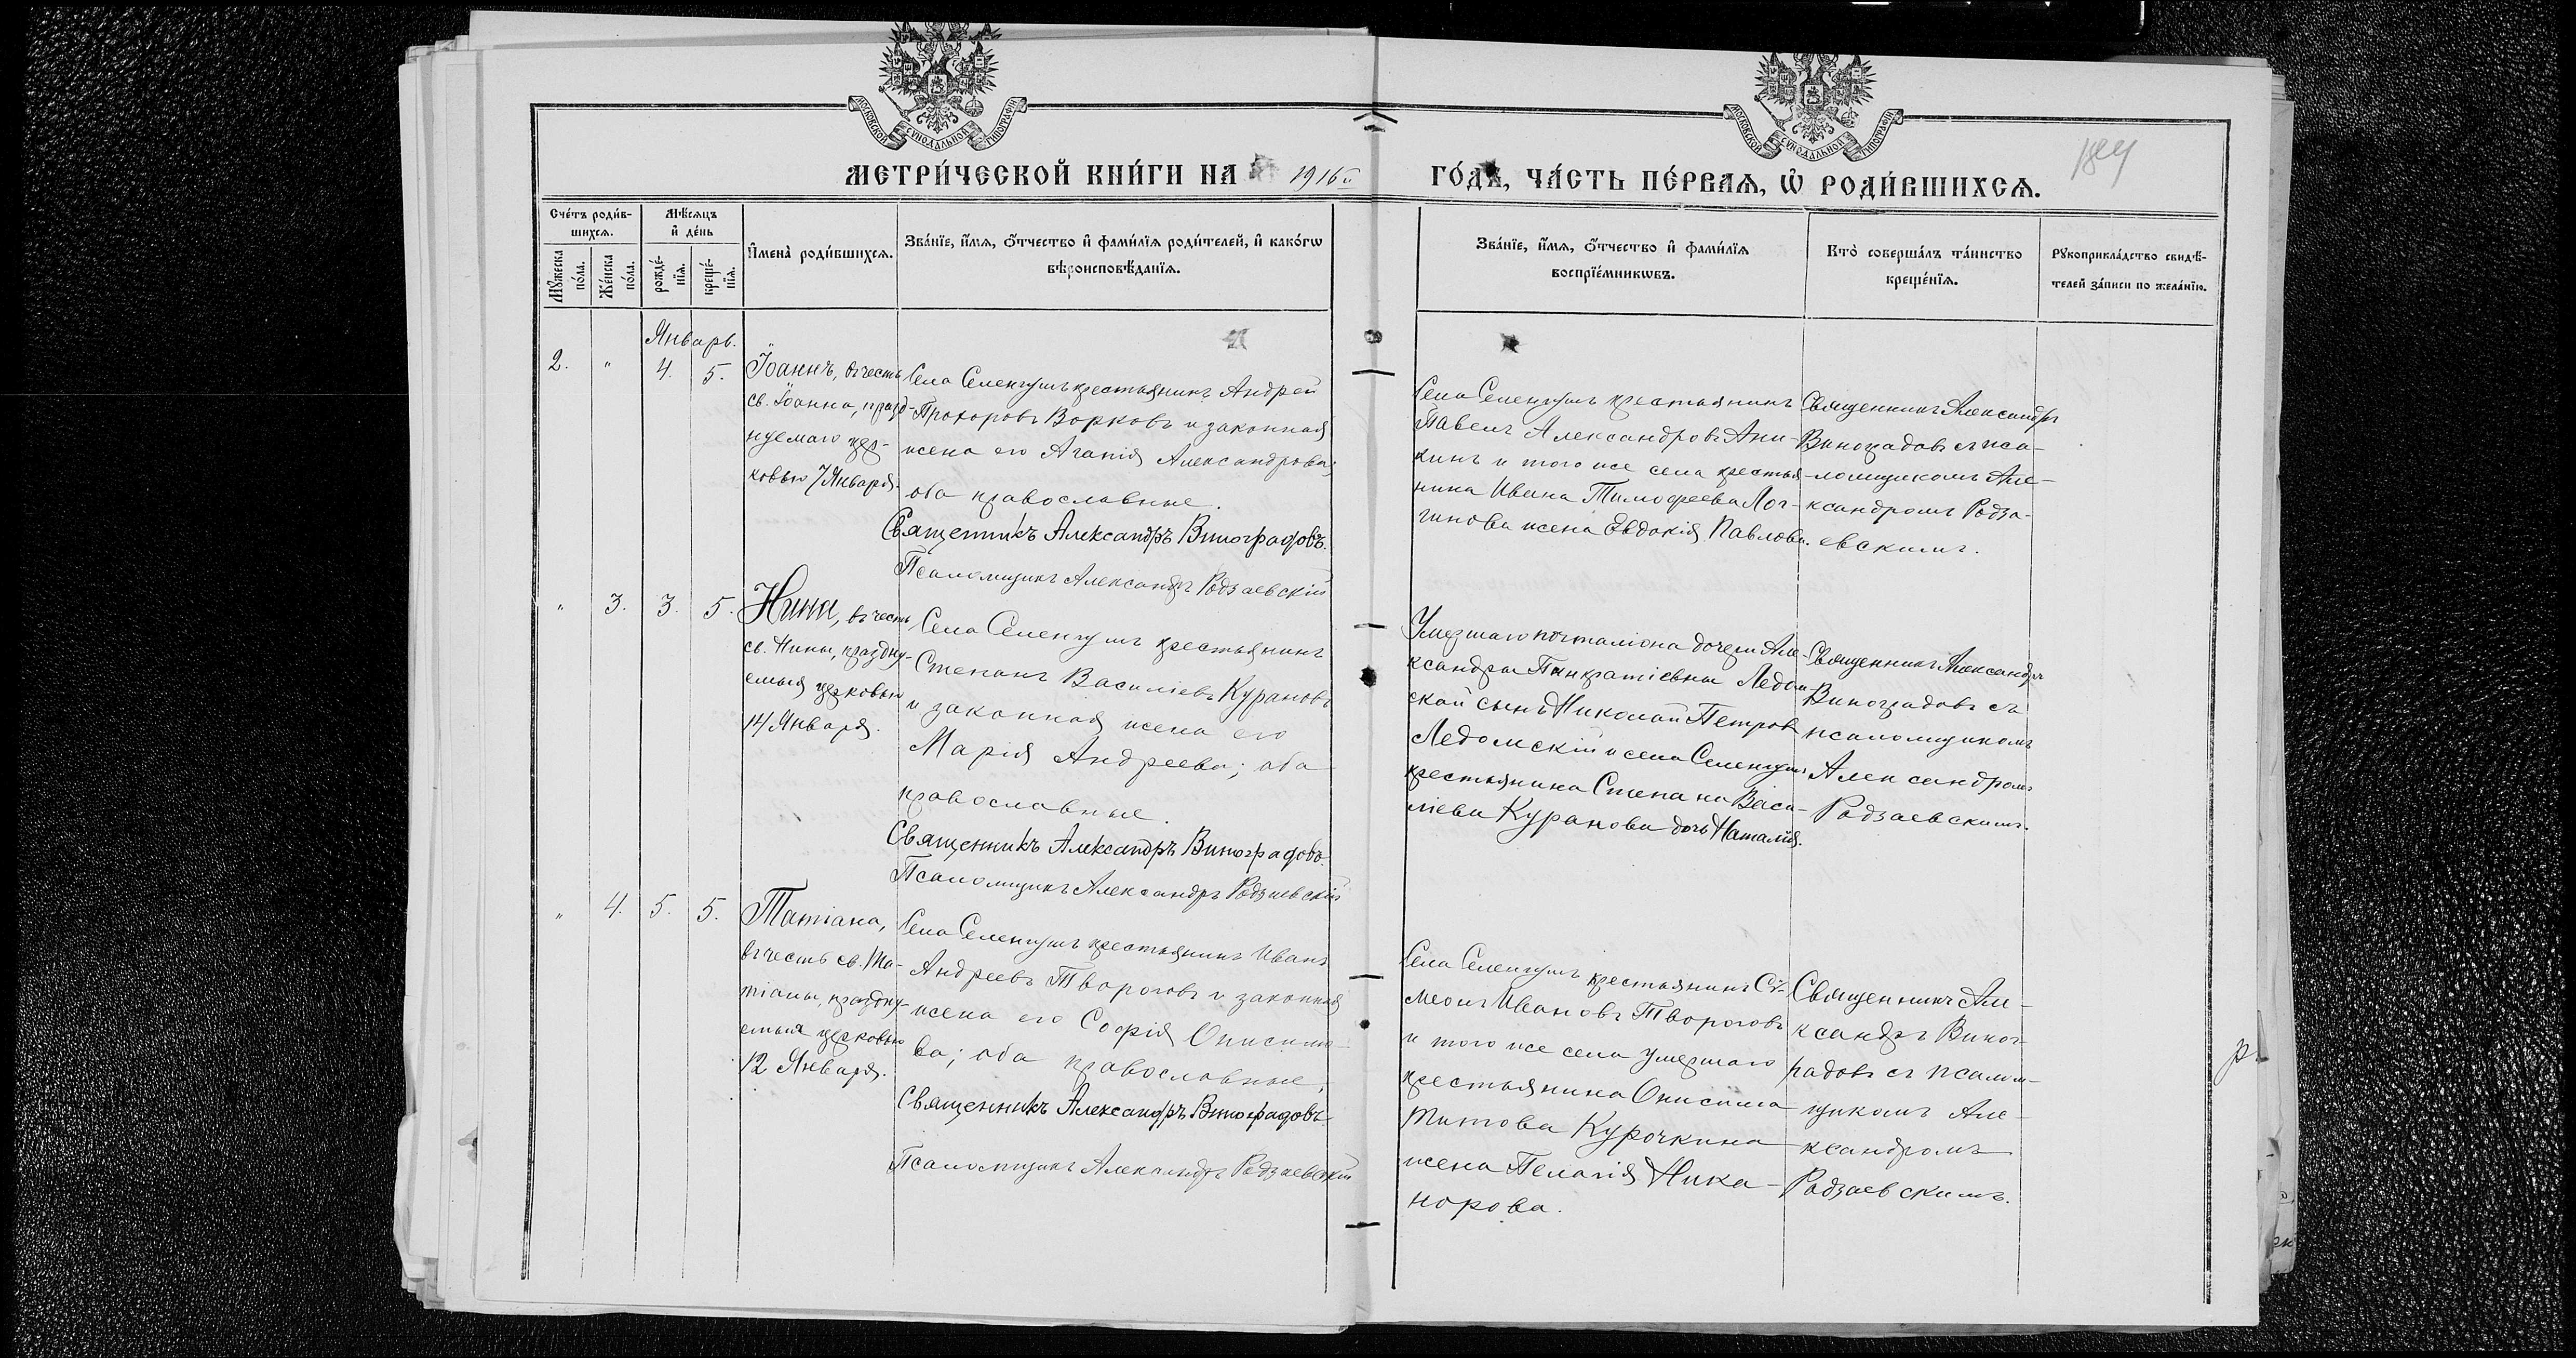 МОСКОВСКОЙ СѴНОДАЛЬНОЙ ТИПОГРАФІИ
МОСКОВСКОЙ СѴНОДАЛЬНОЙ ТИПОГРАФІИ
МЕТРИ́ЧЕСКОЙ КНИ́ГИ НА 1916 г.
ГО́ДЪ, ЧА́СТЬ ПЕ́РВАѦ, Ѡ҆ РОДИ́ВШИХСѦ.
Сче́тъ роди́в-
шихсѧ.
Мꙋ́жеска по́ла.
Же́нска по́ла.
Мѣ́сѧцъ
и҆ де́нь
рожде́-
нїѧ.
креще́-
нїѧ.
И҆мена̀ роди́вшихсѧ.
Зва́нїе, и҆́мѧ, ѻ҆́тчество и҆ фами́лїѧ роди́телей, и҆ како́гѡ
вѣроисповѣ́данїѧ.
Зва́нїе, и҆́мѧ, ѻ҆́тчество и҆ фами́лїѧ
воспрїе́мникѡвъ.
Кто̀ соверша́лъ та́инство
креще́нїѧ.
Рꙋкоприкла́дство свидѣ́-
телей за́писи по жела́нїю.
Январь.
2. " 4. 5.
Іоаннъ, въ честь
св. Іоанна, празд-
нуемаго цер-
ковью 7 Января.
Села Селенгушъ крестьянинъ Андрей
Прохоровъ Ворковъ и законная
жена его Агапія Александрова;
оба православные.
Священникъ Александръ Виноградовъ.
Псаломщикъ Александръ Родзаевскій
Села Селенгушъ крестьянинъ
Павелъ Александровъ Ани-
кинъ и того же села крестья-
нина Ивана Тимофеева Лог-
гинова жена Евдокія Павлова.
Священникъ Александръ
Виноградовъ съ пса-
ломщикомъ Але-
ксандромъ Родза-
евскимъ.
" 3. 3. 5.
Нина, въ честь
св. Нины, праздну-
емыя церковью
14 Января.
Села Селенгушъ крестьянинъ
Степанъ Василіевъ Курановъ
и законная жена его
Марія Андреева; оба
православные.
Священникъ Александръ Виноградовъ.
Псаломщикъ Александръ Родзаевскій
Умершаго почталіона дочери Але-
ксандры Панкратіевны Ледом-
ской сынъ Николай Петровъ
Ледомскій и села Селенгушъ
крестьянина Степана Васи-
ліева Куранова дочь Наталія.
Священникъ Александръ
Виноградовъ съ
псаломщикомъ
Александромъ
Родзаевскимъ.
" 4. 5. 5.
Татіана,
въ честь св. Та-
тіаны, праздну-
емыя церковью
12 Января.
Села Селенгушъ крестьянинъ Иванъ
Андреевъ Твороговъ и законная
жена его Софія Онисимо-
ва; оба православные.
Священникъ Александръ Виноградовъ
Псаломщикъ Александръ Родзаевскій
Села Селенгушъ крестьянинъ Сѵ-
меонъ Ивановъ Твороговъ
и того же села умершаго
крестьянина Онисима
Титова Курочкина
жена Пелагія Ника-
норова.
Священникъ Але-
ксандръ Виног-
радовъ съ псалом-
щикомъ Але-
ксандромъ
Родзаевскимъ.